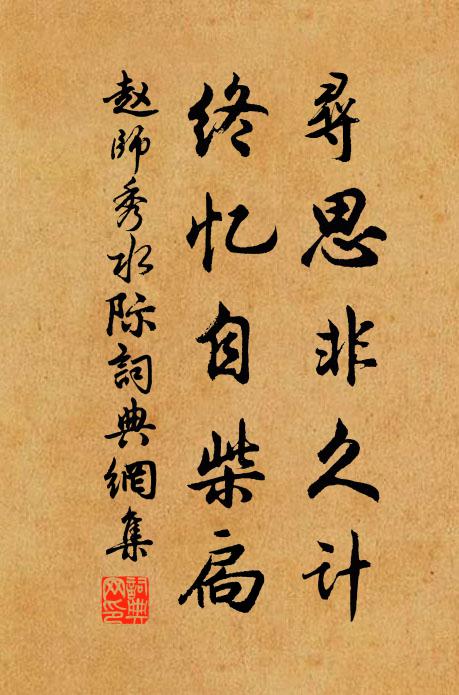 尋思非久计
终忆自柴扃
赵師秀水际詞典網集
詞典网印